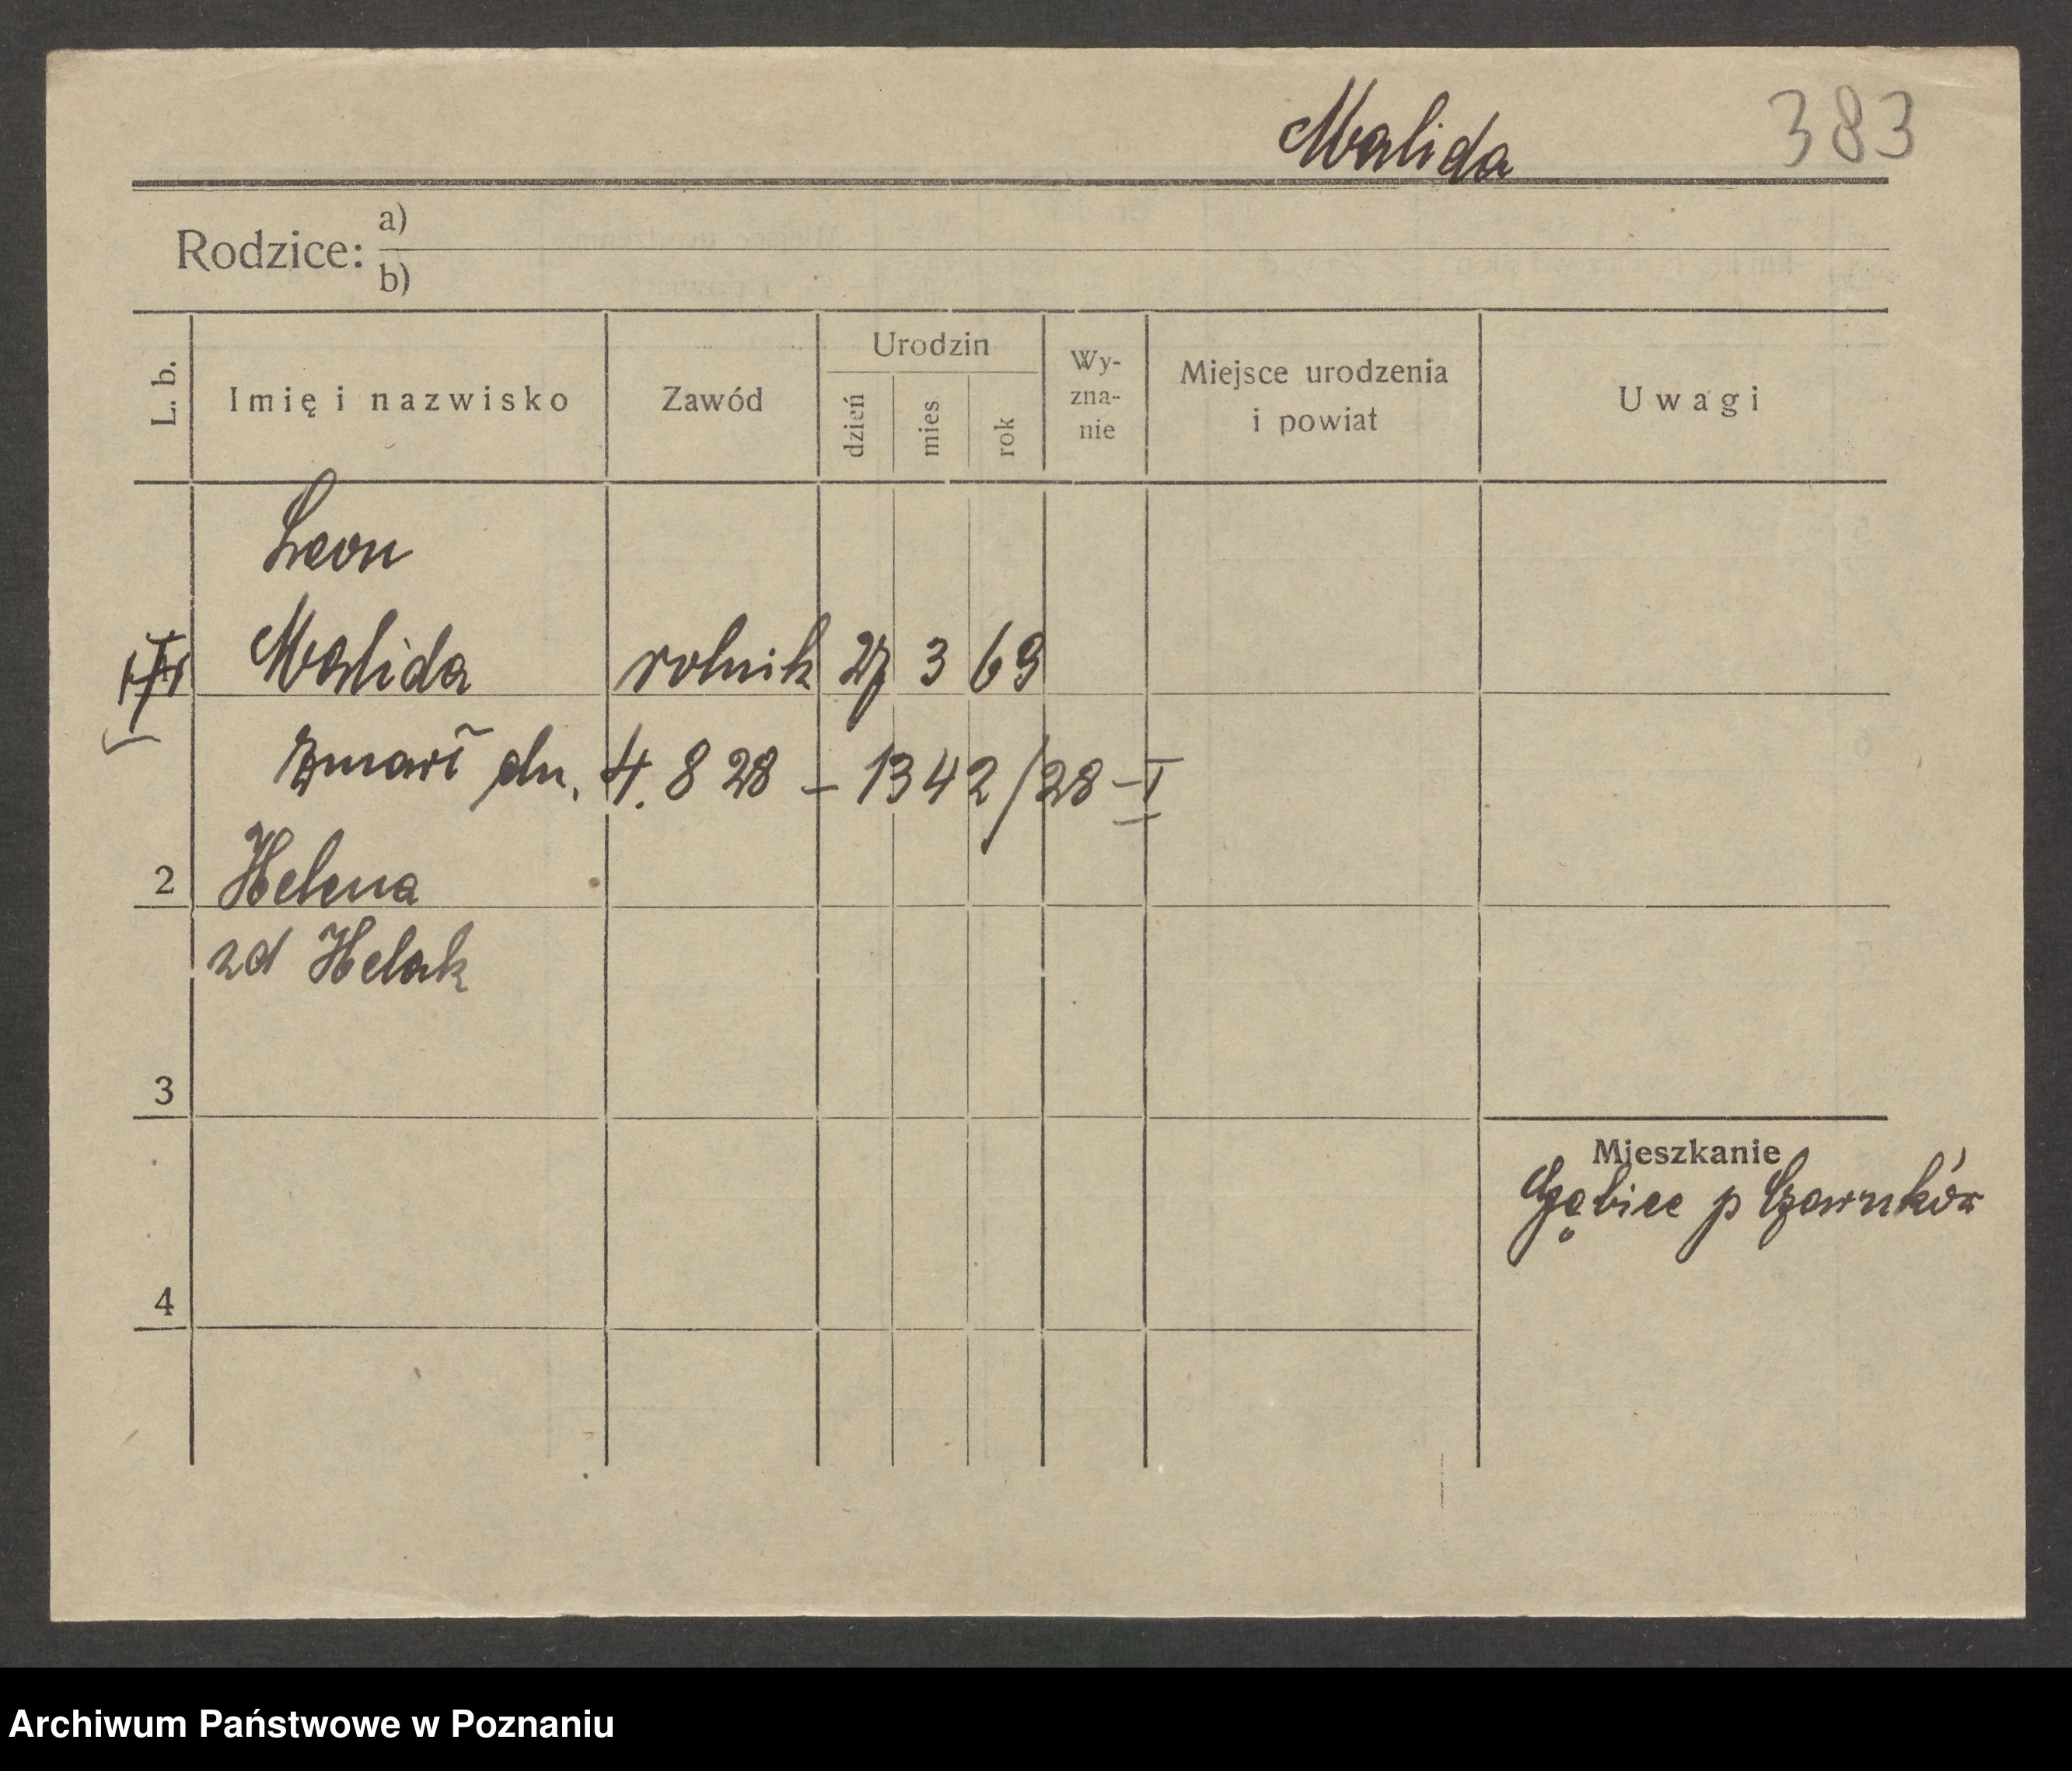 Malida 383
Rodzice: a)
b)
L. b. Imię i nazwisko Zawód Urodzin dzień mies rok Wy-zna-nie Miejsce urodzenia i powiat Uwagi
Leon
Malida rolnik 27 3 69
zmarł dn. 4. 8 28 – 1342/28 – I
2 Helena
zd Helak
3
Mieszkanie
Gębice p Czarnków
4
Archiwum Państwowe w Poznaniu